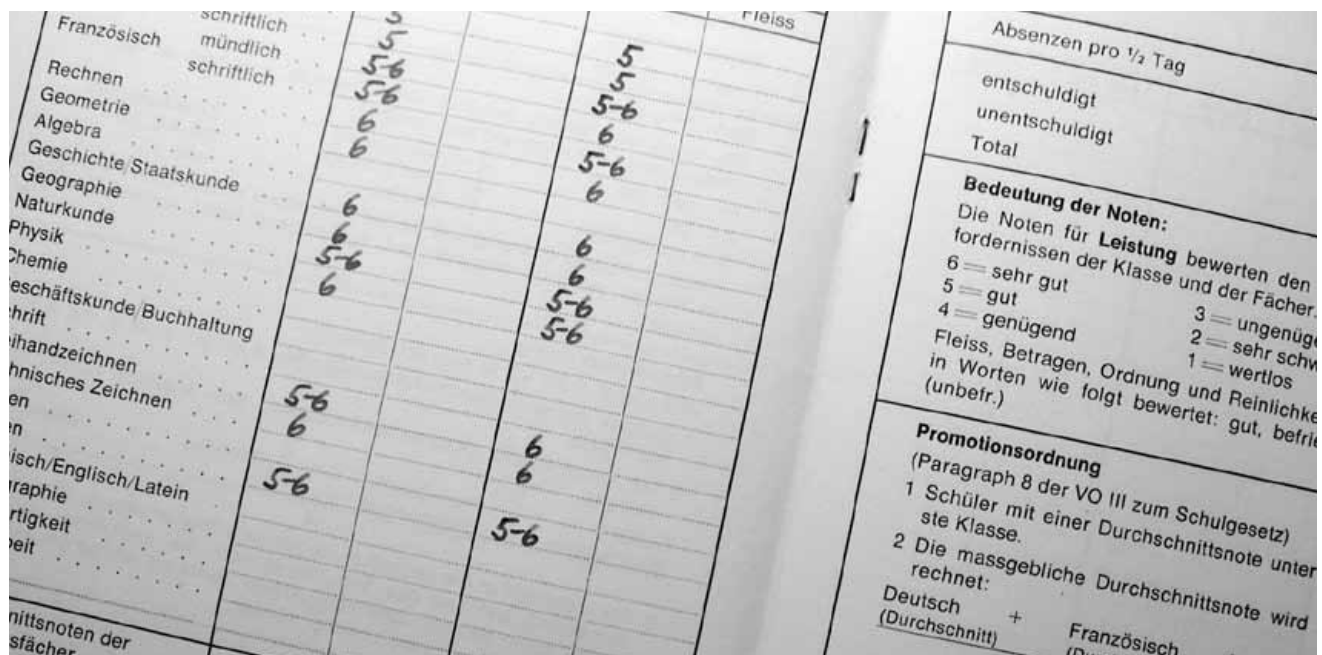 Fleiss
schriftlich
Französisch mündlich
schriftlich
Rechnen
Geometrie
Algebra
Geschichte/Staatskunde
Geographie
Naturkunde
Physik
Chemie
eschäftskunde/Buchhaltung
hrift
eihandzeichnen
hnisches Zeichnen
en
en
isch/Englisch/Latein
raphie
rtigkeit
eit
nittsnoten der
sfächer
5
5
5-6
5-6
6
6
6
6
5-6
6
5-6
6
5-6
5
5
5-6
6
5-6
6
6
6
5-6
5-6
6
6
5-6
Absenzen pro 1/2 Tag
entschuldigt
unentschuldigt
Total
Bedeutung der Noten:
Die Noten für Leistung bewerten den
fordernissen der Klasse und der Fächer.
6 = sehr gut 3 = ungenüge
5 = gut 2 = sehr schw
4 = genügend 1 = wertlos
Fleiss, Betragen, Ordnung und Reinlichke
in Worten wie folgt bewertet: gut, befrie
(unbefr.)
Promotionsordnung
(Paragraph 8 der VO III zum Schulgesetz)
1 Schüler mit einer Durchschnittsnote unter
ste Klasse.
2 Die massgebliche Durchschnittsnote wird
rechnet:
Deutsch + Französisch
(Durchschnitt)